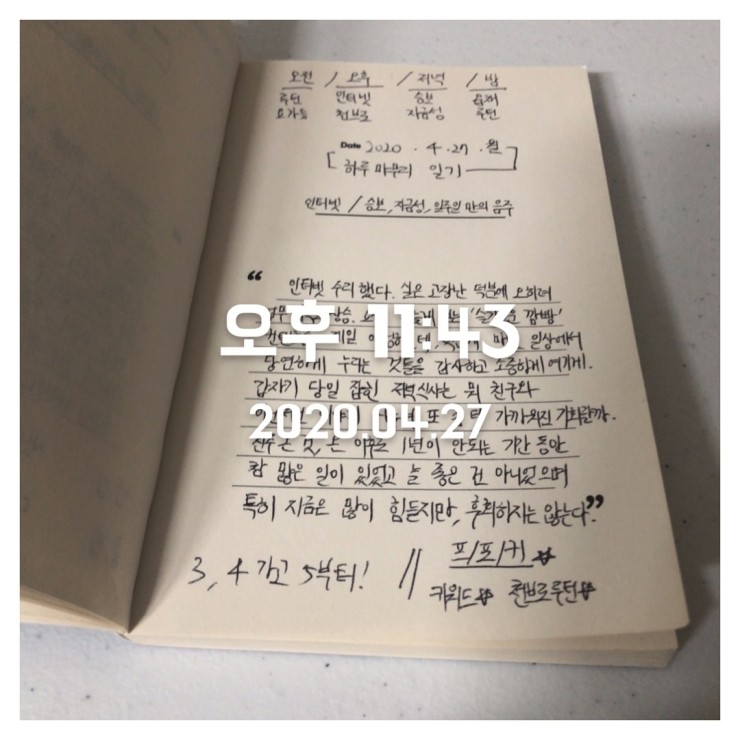 오전 / 오후 / 저녁 / 밤
루틴 인터넷 승보 독서
요가등 천브로 자금성 루틴
Date 2020 . 4 . 27 . 월
하루 마무리 일기
인터넷 / 승보, 자금성, 일주일 만의 음주
“ 인터넷 수리 했다. 실은 고장난 덕분에 오히려
오후 11:43
제일 일상에서
당연하게 누리는 것들을 감사하고 소중하게 여기게.
갑자기 당일 잡힌 저녁식사는 뭐 친구와
2020.04.27
가까워진 기회랄까.
전주 온 것, 은 이후로 1년이 안되는 기간 동안
참 많은 일이 있었고 늘 좋은 건 아니었으며
특히 지금은 많이 힘들지만, 후회하지는 않는다.”
3, 4 가고 5부터! // 프/포/커
키워드 천브로루틴